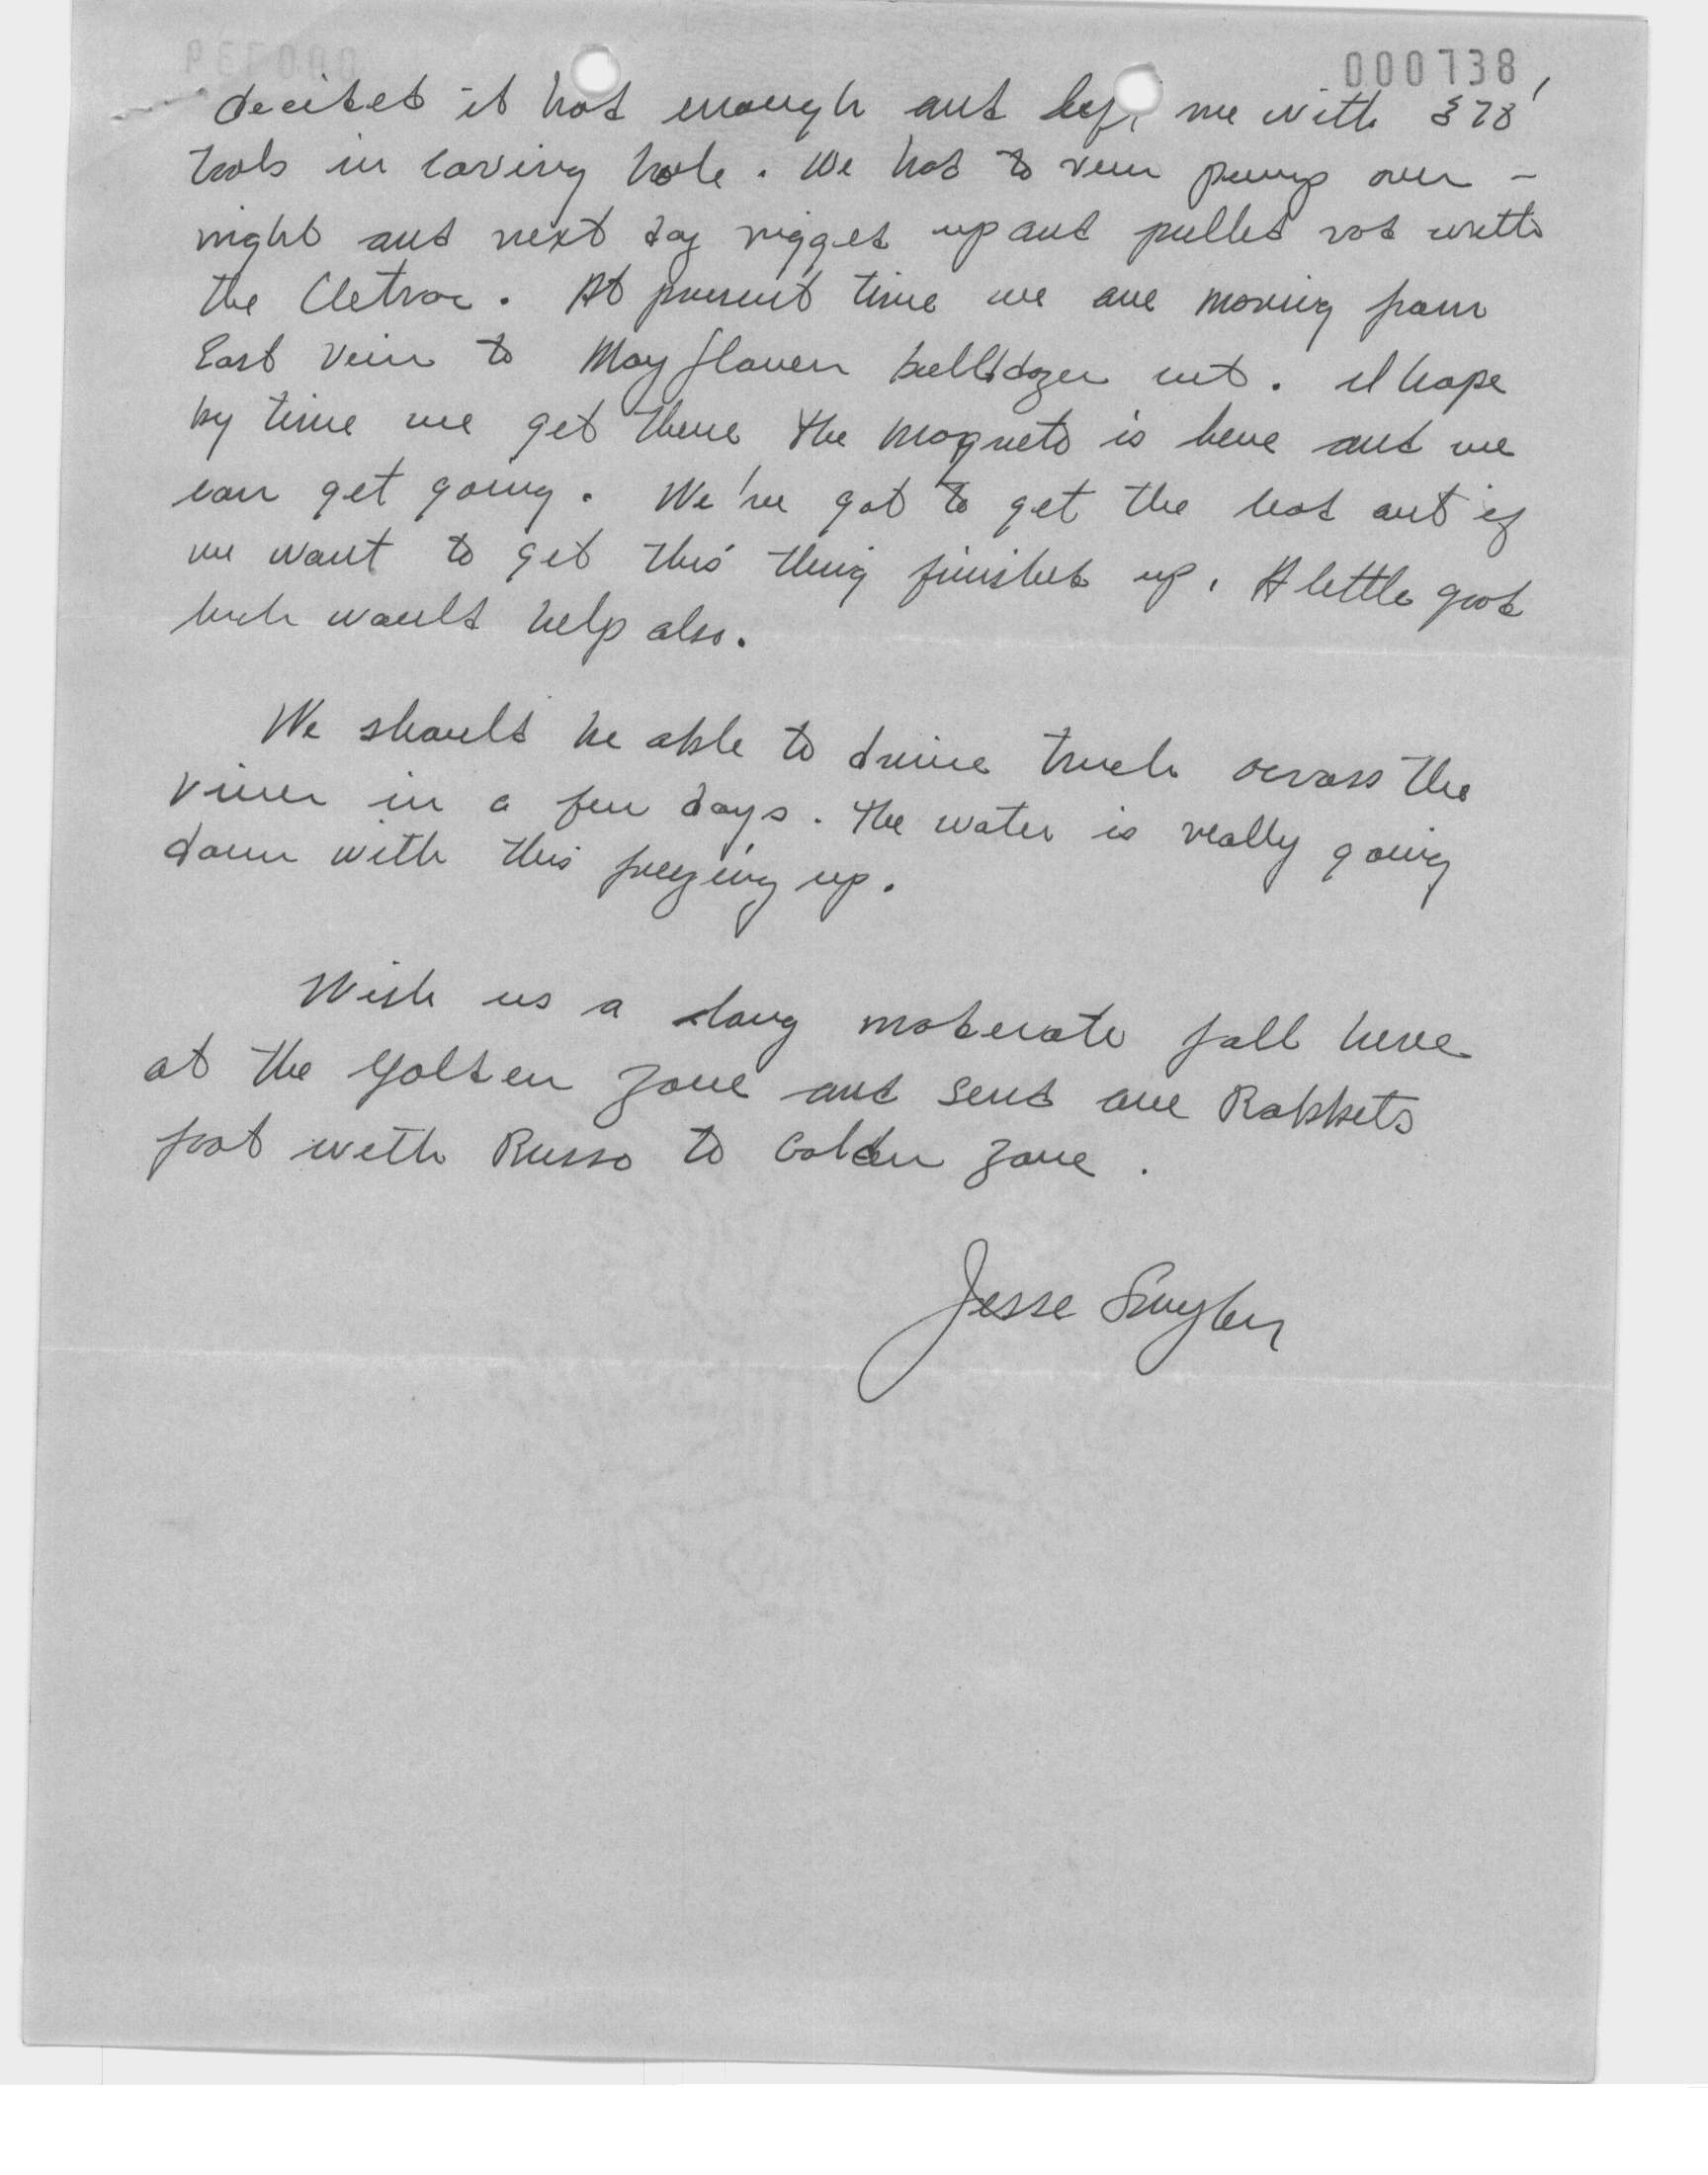 000738
decided it had enough and left me with 378'
tools in caving hole. We had to run pump over-
night and next day rigged up and pulled rod with
the Cletrac. At present time we are moving from
East Vein to Mayflower bulldozer cut. I hope
by time we get there the magneto is here and we
can get going. We've got to get the lead out if
we want to get this thing finished up. A little good
luck would help also.
We should be able to drive truck across the
river in a few days. The water is really going
down with this freezing up.
Wish us a long moderate fall here
at the Golden Zone and send one Rabbits
foot with Russo to Golden Zone.
Jesse